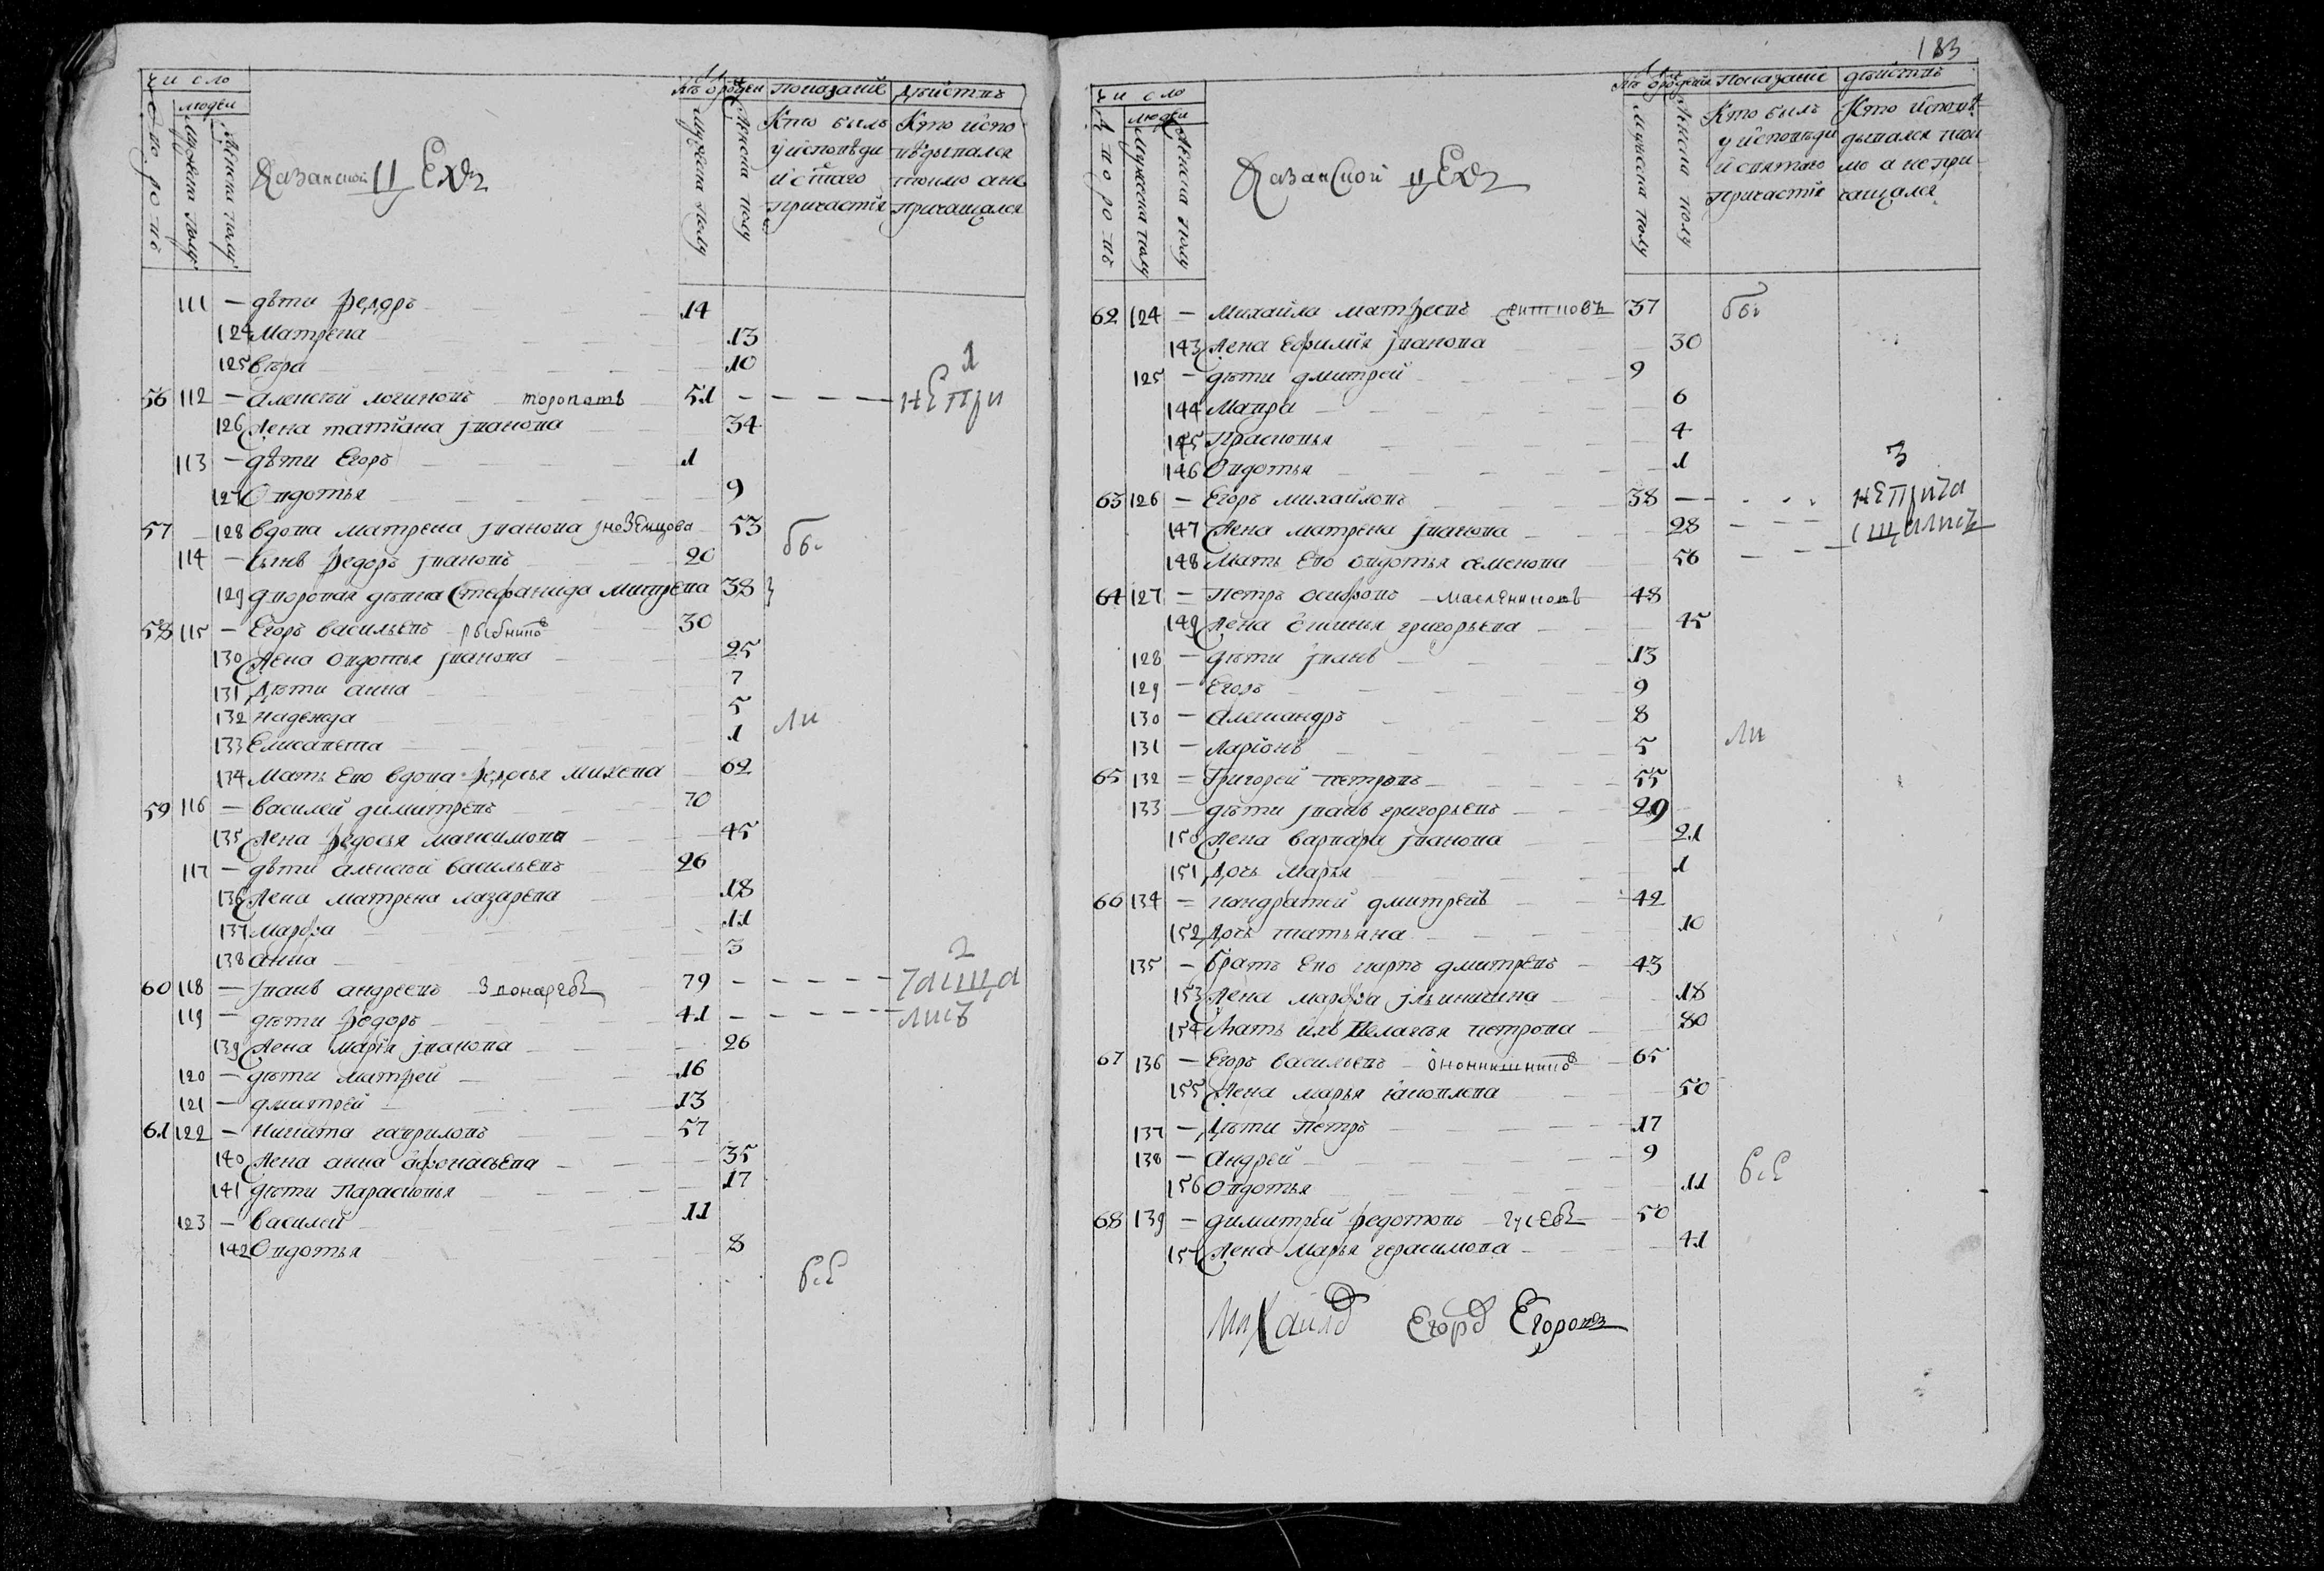 число
людей
дворовъ
мужеска полу
женска полу
Казанской ЦЕхъ
лѣ о рожден
мужеска полу
женска полу
показаніе
дѣйствъ
Кто былъ
у исповѣди
и с таго
причастія
Кто испо
вѣдывался
токмо а не
причащался
111 — дѣти Федоръ 14
124 Матрена 13
125 вѣра 10
1
56 112 — алексѣй логиновъ 51 непри
126 жена татіана Іванова 34
113 — дѣти Егоръ 1
127 Овдотья 9
57 128 вдова матрена Іванова Іноземцова 53
114 — сынъ Федоръ Івановъ 20 бы
129 дворовая дѣвка Стефанида 38
58 115 — Егоръ васильевъ рыбниковъ 30
130 жена овдотья Іванова 25
131 Дѣти анна 7
132 надежда 5
133 Елисавета 1 ли
134 Мать Ево вдова Федосья 62
59 116 — василей димитревъ 70
135 жена Федосья максимова 45
117 — дѣти алексѣй васильевъ 26
136 жена матрена лазарева 18
137 марфа 11
138 анна 3
2
60 118 — Іванъ андреевъ 79 чаща
119 — дѣти Федоръ 41 лись
139 жена марія Іванова 26
120 — дѣти матфей 16
121 — дмитрей 13
61 122 — никита гавриловъ 57
140 жена анна афонасьева 35
141 дѣти Парасковья 17
123 — василей 11
142 Овдотья 8
всЕ
183
число
людей
дворовъ
мужеска полу
женска полу
Казанской ЦЕхъ
мужеска полу
женска полу
показаніе
дѣйствъ
Кто былъ
у исповѣди
и святаго
причастія
Кто исповѣ
дывался ток
мо а не при
чащался
62 124 — михайла матфеевъ 37 бы
143 жена Ефимія Іванова 30
125 — дѣти дмитрей 9
144 Мавра 6
145 Прасковья 4
146 Овдотья 1
3
63 126 — Егоръ михайловъ 38 неприча
147 жена матрена Іванова 28 щились
148 мать Ево овдотья семенова 56
64 127 — петръ осиповъ маслениковъ 48
149 жена григорьева 45
128 — дѣти Іванъ 13
129 — Егоръ 9
130 — александръ 8
131 — ларіонъ 5 ли
65 132 — Григорей петровъ 55
133 — дѣти Іванъ григорьевъ 29
150 жена варвара Іванова 21
151 дочь марья 1
66 134 — кондратей дмитреевъ 42
152 дочь татьяна 10
135 — братъ Ево карпъ дмитревъ 43
153 жена марфа Ільинична 18
154 мать ихъ Пелагѣя петрова 80
67 136 — Егоръ васильевъ оконнишниковъ 65
155 жена марья Іаковлева 50
137 — Дѣти петръ 17
138 — андрей 9
156 овдотья 11 всЕ
68 139 — димитрей Федотовъ гусевъ 50
157 жена марья герасимова 41
Михаилъ Егоръ Егоровъ